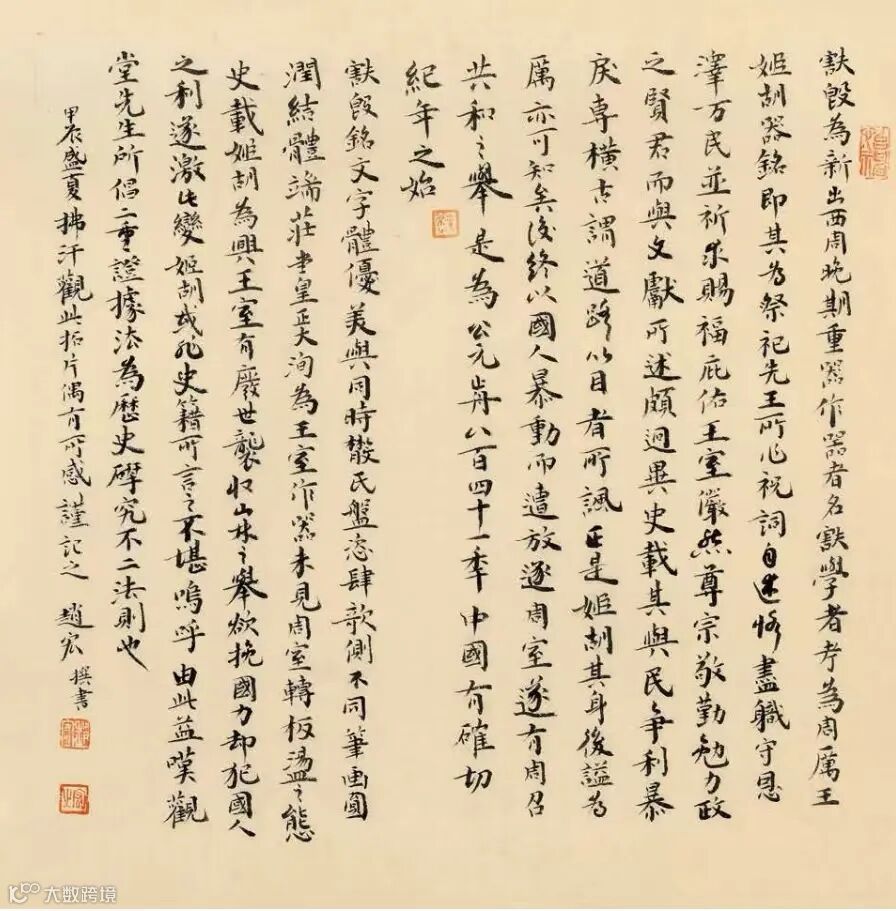 㝬毁為新出西周晚期重器作器者名㝬學者考為周厲王
姬胡器銘即其為祭祀先王所作祝詞自述恪盡職守恩
澤万民並祈求賜福庇佑王室儼然尊宗敬勤勉力政
之賢君而與文獻所述頗迥異史載其與民爭利暴
戾専横古謂道路以目者所諷正是姬胡其身後謚為
厲亦可知矣後終以國人暴動而遭放逐周室遂有周召
共和之舉是為公元前八百四十一季中國有確切
紀年之始
㝬毁銘文字體優美與同時散氏盤恣肆欹側不同筆画圓
潤結體端莊堂皇正大洵為王室作器未見周室轉板盪之態
史載姬胡為興王室有廢世襲收山林之舉欲挽國力却犯國人
之利遂激此變姬胡或非史籍所言之不堪嗚呼由此益嘆觀
堂先生所倡二重證據法為歷史研究不二法則也
甲辰盛夏揮汗觀此拓片偶有所感謹記之 趙宏撰書
大数跨境